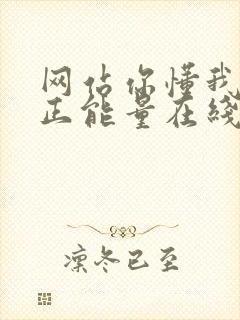 网站你懂我
正能量在线
凛冬已至